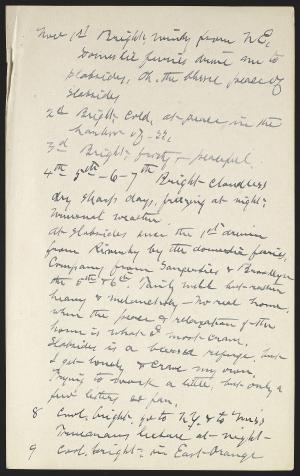 Nov 1st Bright, windy from N.E.
Domestic furies drive me to
Slabsides, Oh, the blessed peace of
Slabsides
2d Bright cold, at peace in the
harbor of S.S.
3d Bright, frosty, peaceful.
4th 5th-6-7th Bright cloudless
dry sharp days, freezing at night.
Unusual weather.
At Slabsides since the 1st driven
from Riverby by the domestic furies.
Company from Saugerties & Brooklyn
the 5th & 6th. Fairly well but rather
heavy & melancholy - no real home,
when the peace & relaxation of the
home is what I most crave.
Slabsides is a blessed refuge, but
I get lonely & crave my own.
Trying to work a little, but only a
few letters so far.
8 Cool, bright, go to N.Y. & to Miss
lecture at night-
9 Cool, bright; in East Orange